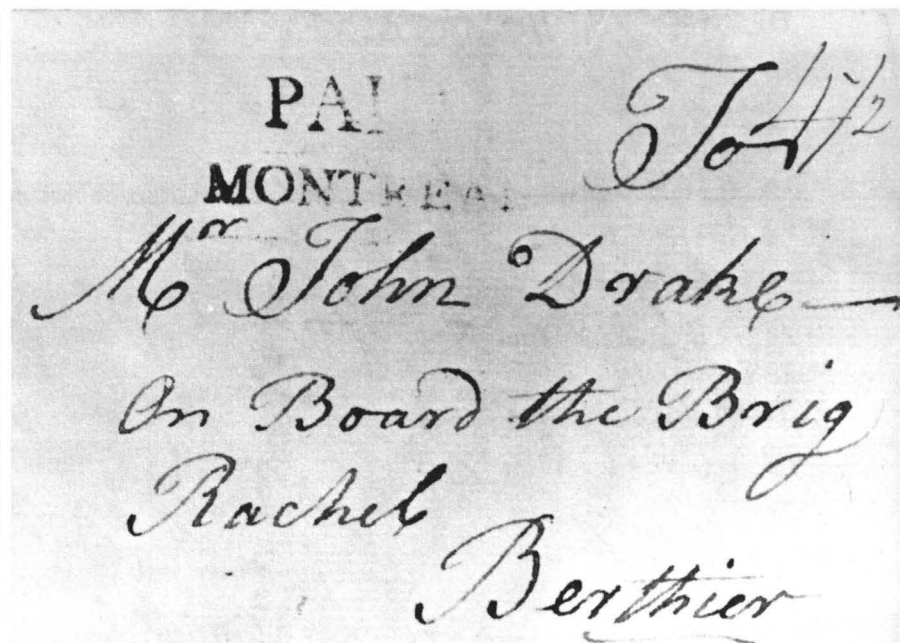 PAI
To 4 1/2
MONTREAL
Mr John Drake
On Board the Brig
Rachel
Berthier